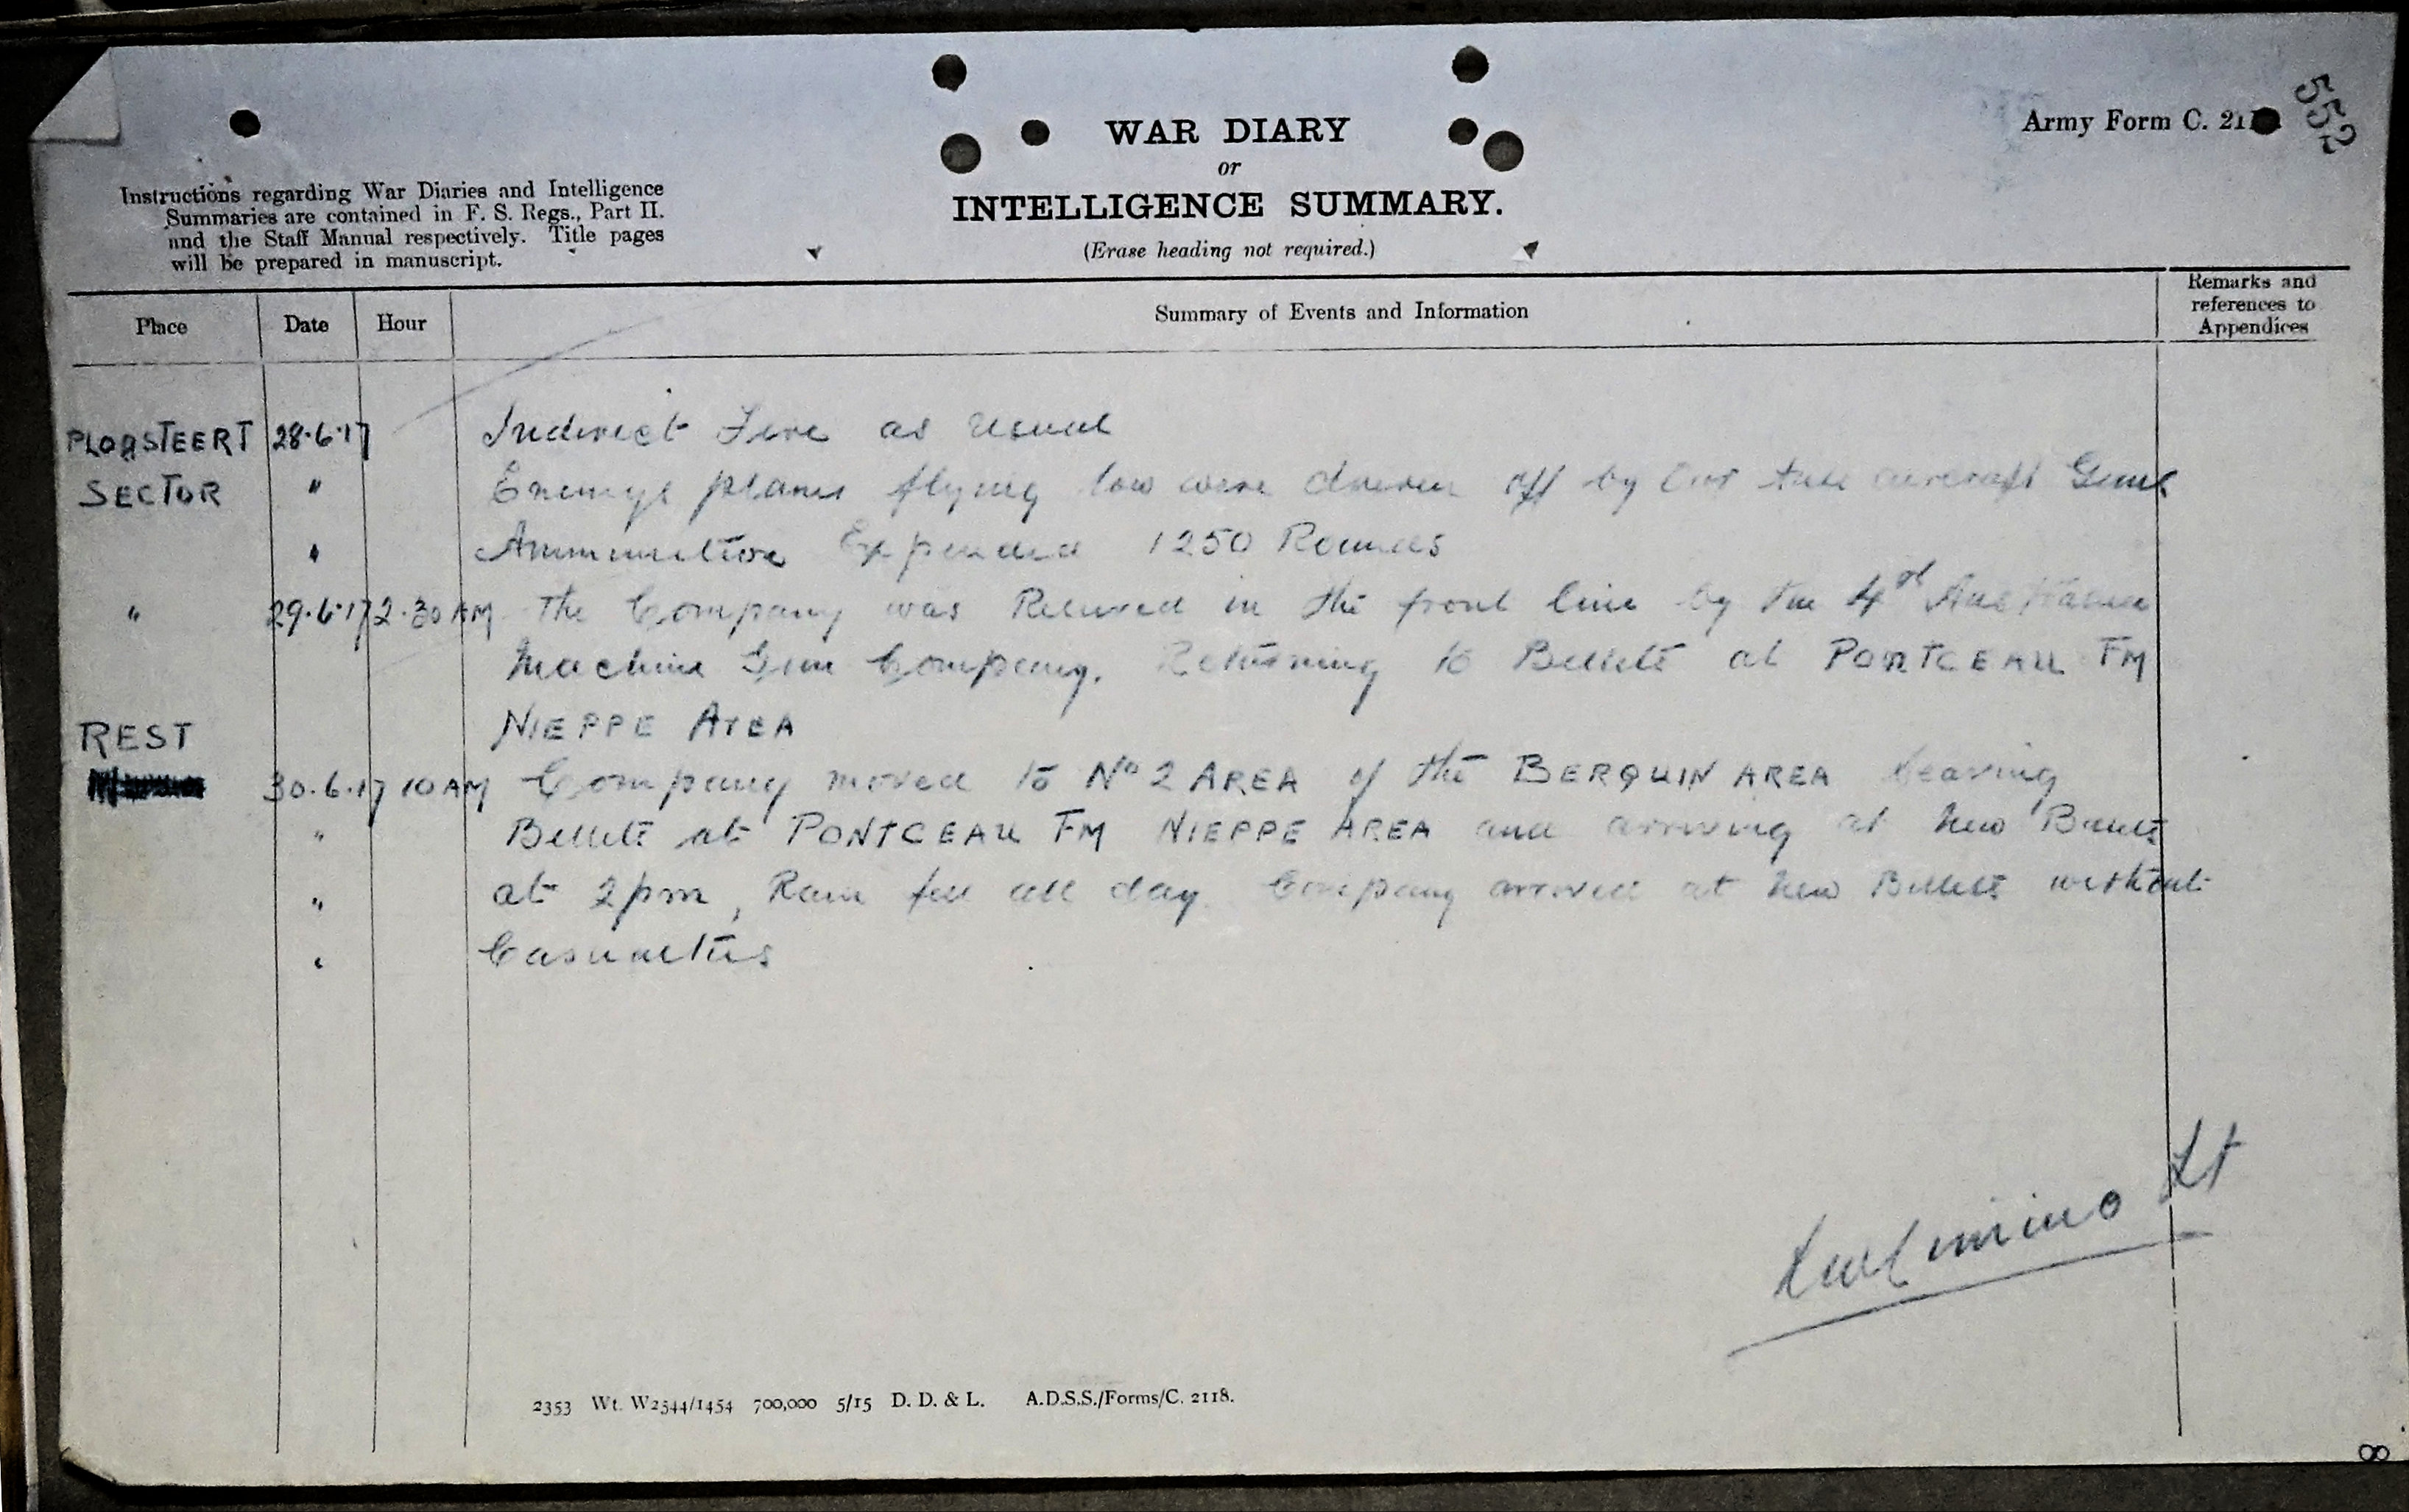 552
Army Form C. 21
WAR DIARY
or
INTELLIGENCE SUMMARY.
(Erase heading not required.)
Instructions regarding War Diaries and Intelligence
Summaries are contained in F. S. Regs., Part II.
and the Staff Manual respectively. Title pages
will be prepared in manuscript.
Place Date Hour Summary of Events and Information Remarks and
references to
Appendices
PLOGSTEERT 28.6.17 Indirect Fire as usual
SECTOR " Enemys planes flying low were driven off by our aircraft Guns
" Ammunition Expended 1250 Rounds
" 29.6.17 2.30 AM The Company was Relieved in the front line by the 4th Australian
Machine Gun Company. Returning to Billets at PONTCEAU FM
NIEPPE AREA
REST
30.6.17 10 AM Company moved to No 2 AREA of the BERQUIN AREA leaving
" Billets at PONTCEAU FM NIEPPE AREA and arriving at New Billets
" at 2 pm, Rain fell all day. Company arrived at New Billets without
" Casualties
Lt
2353 Wt. W2544/1454 700,000 5/15 D. D. & L. A.D.S.S./Forms/C. 2118.
8